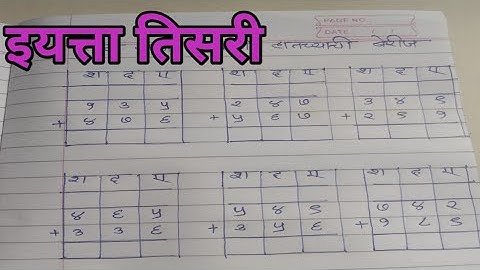 इयत्ता तिसरी
PAGE NO.
DATE
हातच्याची बेरीज
श द ए श द ए श द ए
१ ३ ५ २ ४ ७ ३ ४ ९
+ ४ ७ ६ + ५ ६ ७ + २ ९ १
श द ए श द ए श द ए
४ ६ ५ ५ ४ ९ ७ ४ २
+ ३ ३ ६ + ३ ५ ६ + १ ८ ९